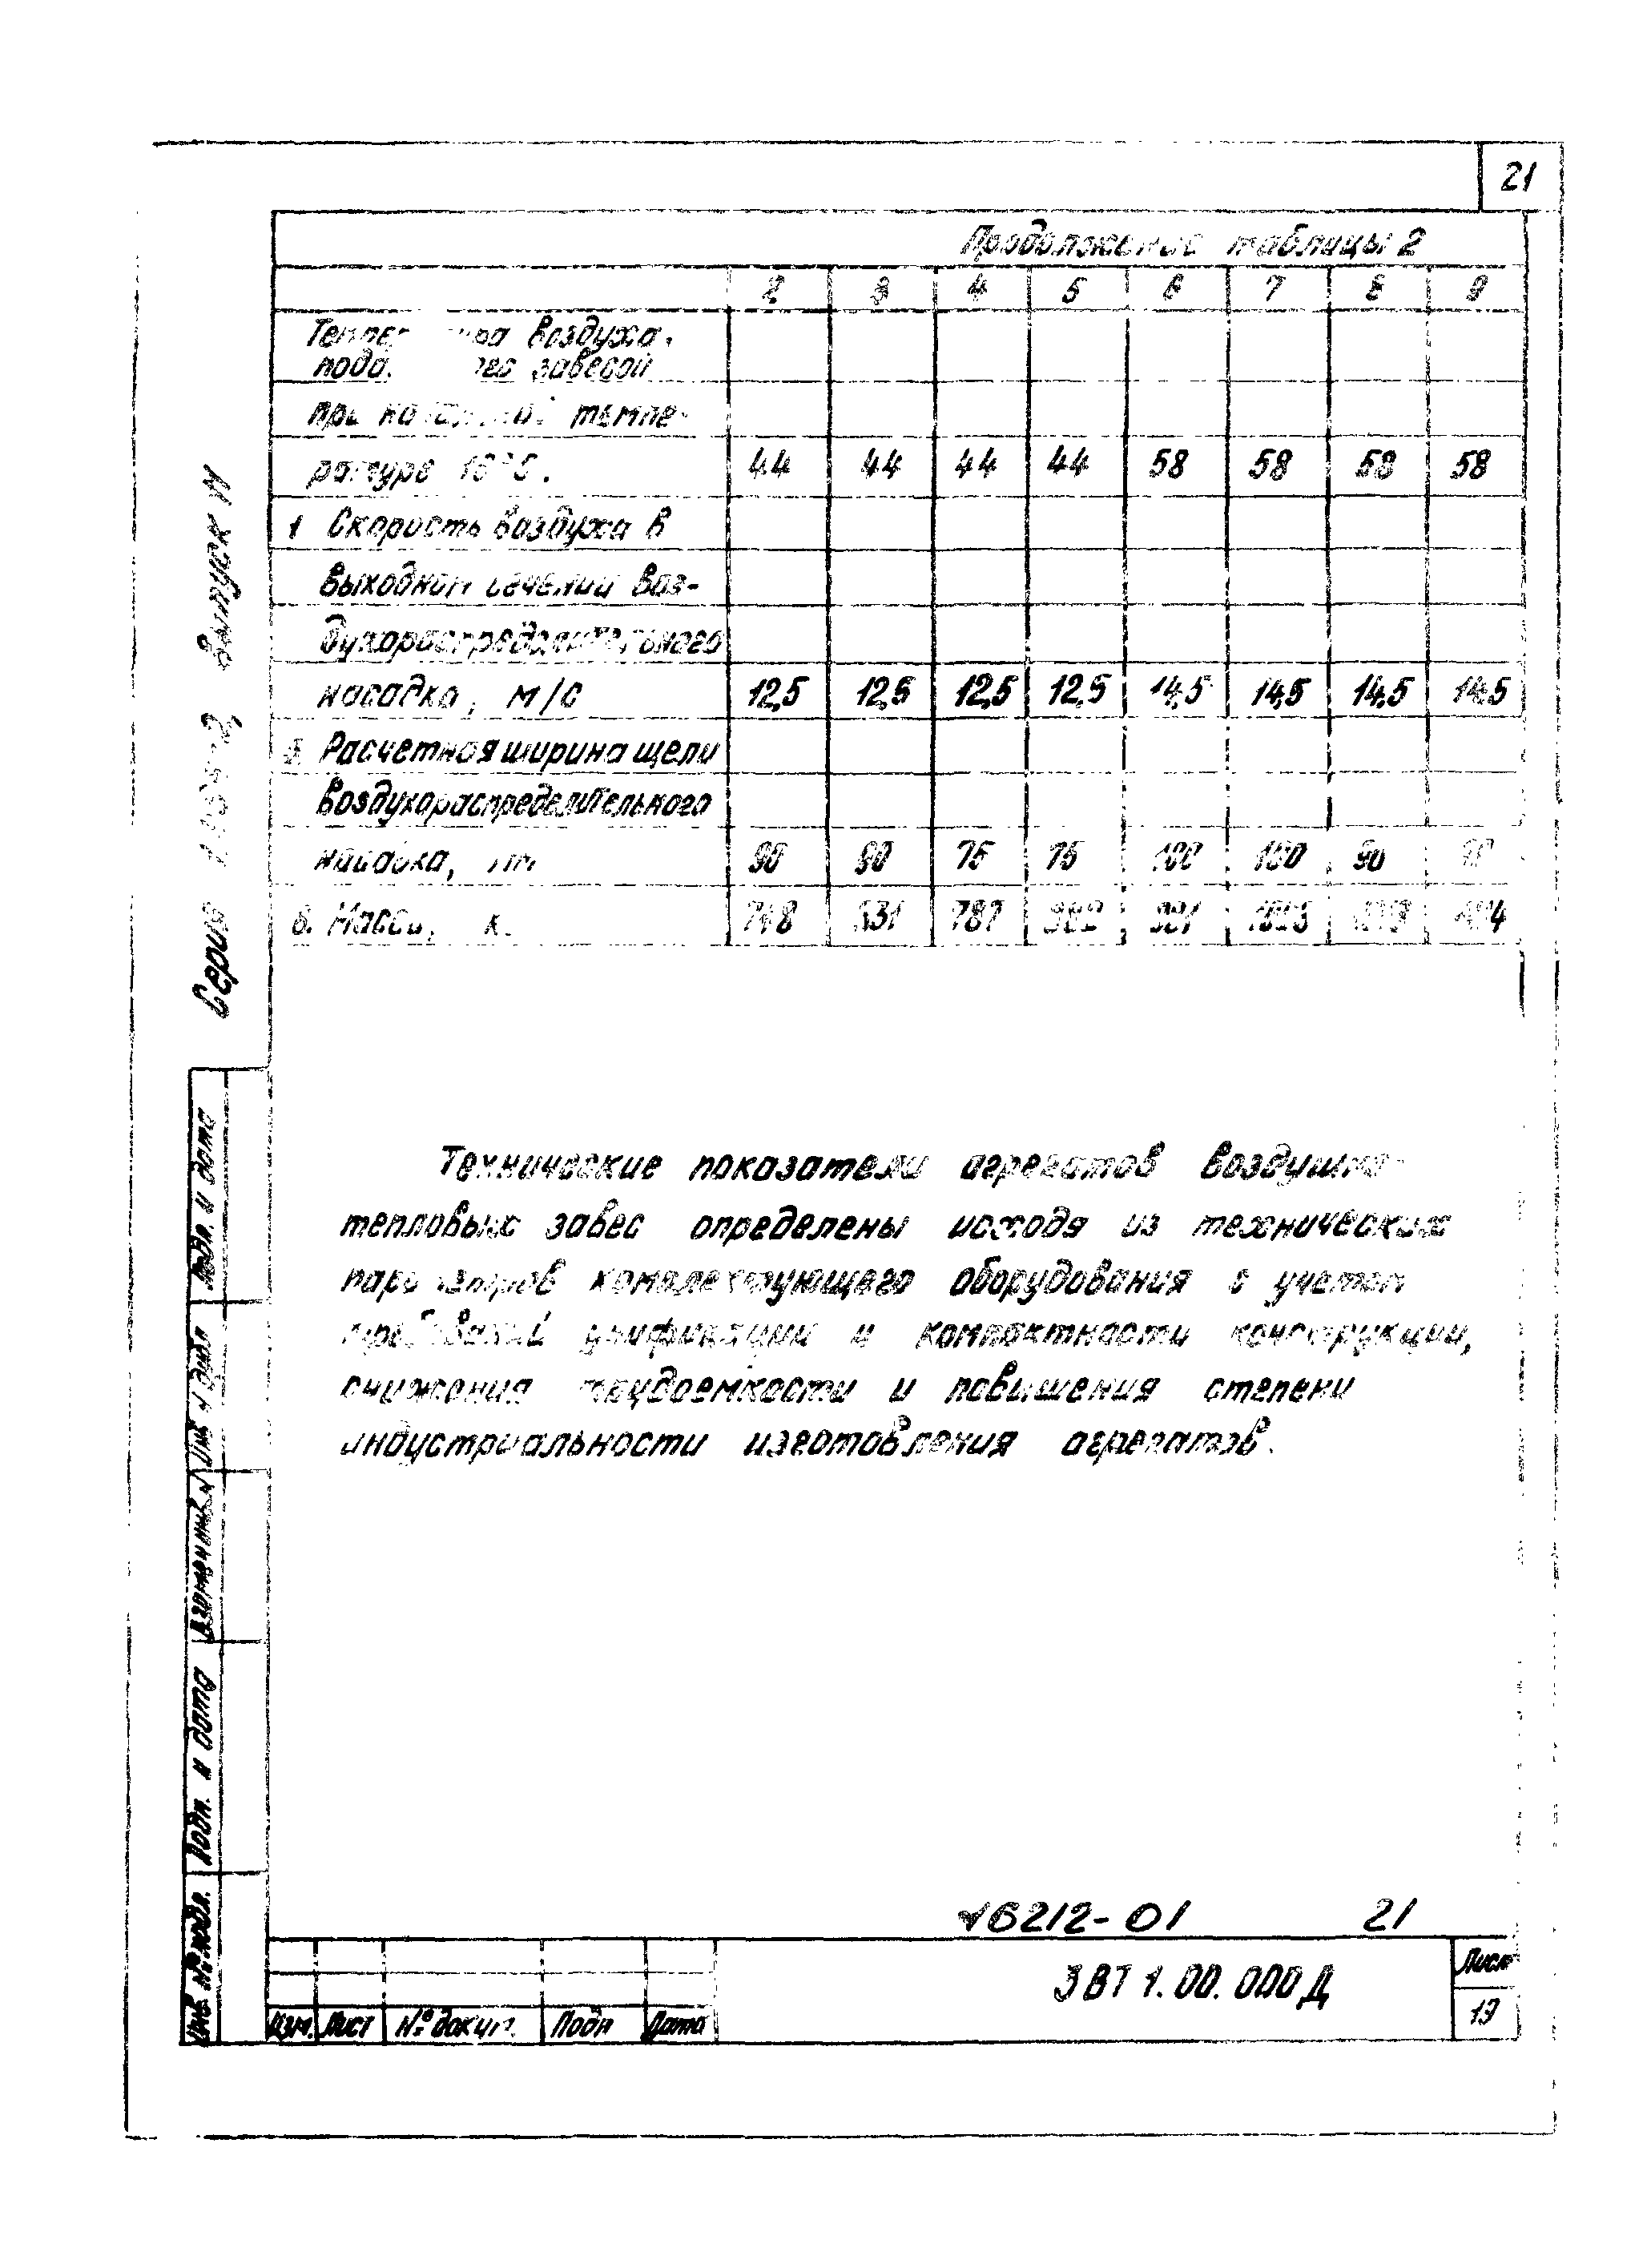 21
Продолжение таблицы 2
2 3 4 5 6 7 8 9
воздуха,
завесой
при темпе-
ратуре 16°С. 44 44 44 44 58 58 58 58
Скорость воздуха в
выходном сечении воз-
духораспределительного
насадка, м/с 12,5 12,5 12,5 12,5 14,5 14,5 14,5 14,5
Расчетная ширина щели
воздухораспределительного
насадка, 90 90 75 75 100 100 90
6. Масса, 787
Технические показатели агрегатов воздушно-
тепловых завес определены исходя из технических
параметров комплектующего оборудования с учетом
требований унификации и компактности конструкции,
снижения трудоемкости и повышения степени
индустриальности изготовления агрегатов.
Серия Выпуск
Подп. и дата
Инв № дубл
Взам инв №
Подп. и дата
Инв. № подл.
16212-01 21
ЗВТ 1.00.000Д
Лист
19
Изм. Лист № докум. Подп Дата